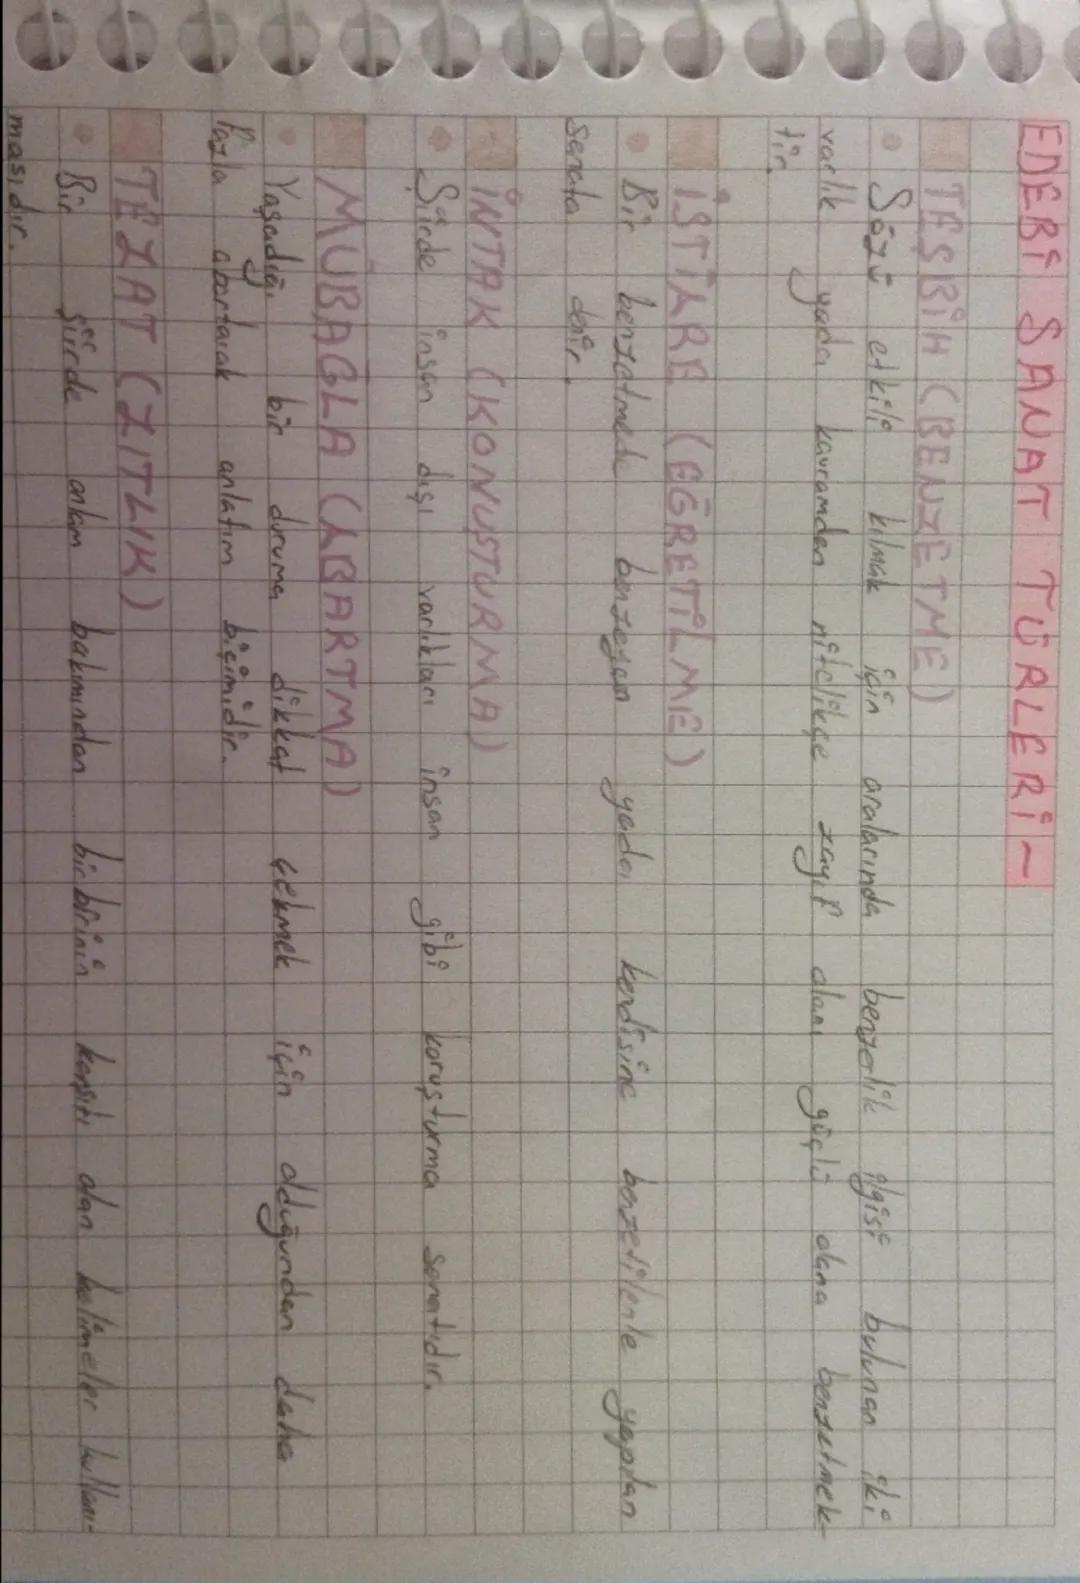 EDEBİ SANAT TÜRLERİ~
TEŞBİH (BENZETME)
• Sözü etkili kılmak için aralarında benzerlik ilgisi bulunan iki
varlık yada kavramdan nitelikçe zayıf olanı güçlü olana benzetmek-
tir.
İSTİARE (EĞRETİLME)
• Bir benzetmede benzeyen yada kendisine benzetilenle yapılan
sanata denir.
İNTAK (KONUŞTURMA)
• Şiirde insan dışı varlıkları insan gibi konuşturma sanatıdır.
MÜBAĞLA (ABARTMA)
• Yaşadığı bir duruma dikkat çekmek için olduğundan daha
fazla abartarak anlatım biçimidir.
TEZAT (ZITLIK)
• Bir şiirde anlam bakımından birbirinin karşıtı olan kelimeler kullanı-
masıdır.